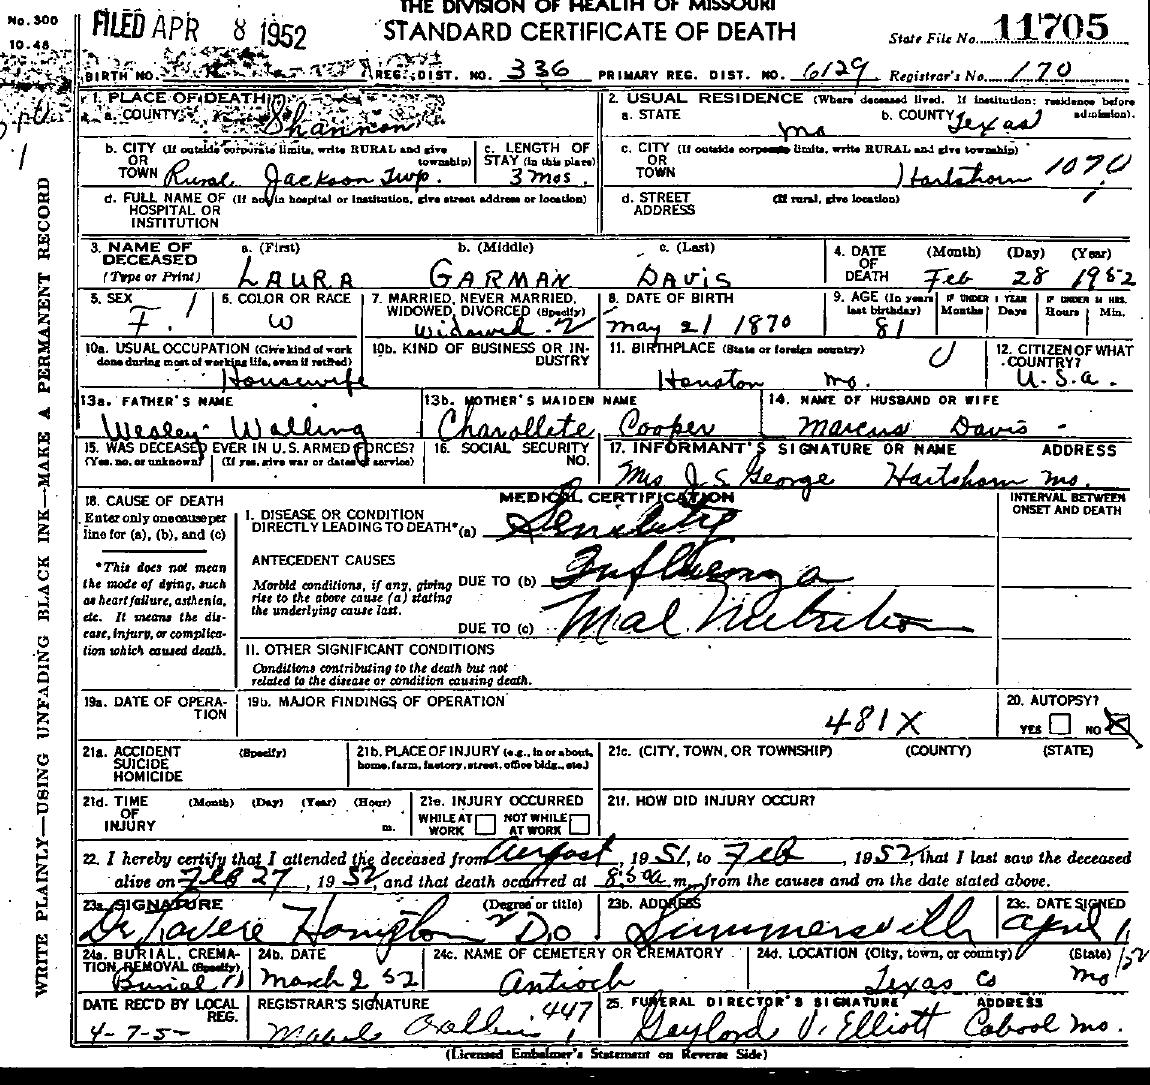 THE DIVISION OF HEALTH OF MISSOURI
No. 300
10-48
FILED APR 8 1952
STANDARD CERTIFICATE OF DEATH
State File No. 11705
BIRTH NO. REG. DIST. NO. 336 PRIMARY REG. DIST. NO. 6129 Registrar's No. 170
1. PLACE OF DEATH
a. COUNTY Shannon
2. USUAL RESIDENCE (Where deceased lived. If institution: residence before admission).
a. STATE Mo b. COUNTY Texas
b. CITY (If outside corporate limits, write RURAL and give township)
OR
TOWN Rural Jackson Twp.
c. LENGTH OF
STAY (in this place)
3 mos.
c. CITY (If outside corporate limits, write RURAL and give township)
OR
TOWN Hartshorn 1070
d. FULL NAME OF (If not in hospital or institution, give street address or location)
HOSPITAL OR
INSTITUTION
d. STREET (If rural, give location)
ADDRESS
3. NAME OF DECEASED
(Type or Print)
a. (First) b. (Middle) c. (Last)
LAURA GARMAN DAVIS
4. DATE OF DEATH (Month) (Day) (Year)
Feb 28 1952
5. SEX
F. 1
6. COLOR OR RACE
W
7. MARRIED, NEVER MARRIED,
WIDOWED, DIVORCED (Specify)
Widowed 2
8. DATE OF BIRTH
May 21 1870
9. AGE (In years last birthday)
81
IF UNDER 1 YEAR
Months Days
IF UNDER 24 HRS.
Hours Min.
10a. USUAL OCCUPATION (Give kind of work
done during most of working life, even if retired)
Housewife
10b. KIND OF BUSINESS OR INDUSTRY
11. BIRTHPLACE (State or foreign country)
Houston Mo.
12. CITIZEN OF WHAT
COUNTRY?
U.S.A.
13a. FATHER'S NAME
Wesley Walling
13b. MOTHER'S MAIDEN NAME
Charollete Cooper
14. NAME OF HUSBAND OR WIFE
Marcus Davis
15. WAS DECEASED EVER IN U.S. ARMED FORCES?
(Yes, no, or unknown) (If yes, give war or dates of service)
16. SOCIAL SECURITY
NO.
17. INFORMANT'S SIGNATURE OR NAME ADDRESS
Mrs J. S. George Hartshorn Mo.
18. CAUSE OF DEATH
Enter only one cause per
line for (a), (b), and (c)
*This does not mean
the mode of dying, such
as heart failure, asthenia,
etc. It means the disease,
injury, or complication
which caused death.
MEDICAL CERTIFICATION
INTERVAL BETWEEN
ONSET AND DEATH
I. DISEASE OR CONDITION
DIRECTLY LEADING TO DEATH*(a) Senility
ANTECEDENT CAUSES
Morbid conditions, if any, giving
rise to the above cause (a) stating
the underlying cause last.
DUE TO (b) Influenza
DUE TO (c) Mal Nutrition
II. OTHER SIGNIFICANT CONDITIONS
Conditions contributing to the death but not
related to the disease or condition causing death.
19a. DATE OF OPERATION
19b. MAJOR FINDINGS OF OPERATION
481X
20. AUTOPSY?
YES NO X
21a. ACCIDENT (Specify)
SUICIDE
HOMICIDE
21b. PLACE OF INJURY (e.g., in or about,
home, farm, factory, street, office bldg., etc.)
21c. (CITY, TOWN, OR TOWNSHIP) (COUNTY) (STATE)
21d. TIME (Month) (Day) (Year) (Hour)
OF
INJURY m.
21e. INJURY OCCURRED
WHILE AT WORK NOT WHILE AT WORK
21f. HOW DID INJURY OCCUR?
22. I hereby certify that I attended the deceased from August, 1951, to Feb, 1952, that I last saw the deceased
alive on Feb 27, 1952, and that death occurred at 8:50a m., from the causes and on the date stated above.
23a. SIGNATURE (Degree or title)
Dr Lavere Hampton D.O.
23b. ADDRESS
Summersville
23c. DATE SIGNED
April 1, /52
24a. BURIAL, CREMATION, REMOVAL (Specify)
Burial
24b. DATE
March 2 52
24c. NAME OF CEMETERY OR CREMATORY
Antioch
24d. LOCATION (City, town, or county) (State)
Texas Co Mo
DATE REC'D BY LOCAL REG.
4-7-5-
REGISTRAR'S SIGNATURE
447
25. FUNERAL DIRECTOR'S SIGNATURE ADDRESS
Gaylord V. Elliott Cabool Mo.
(Licensed Embalmer's Statement on Reverse Side)
WRITE PLAINLY—USING UNFADING BLACK INK—MAKE A PERMANENT RECORD